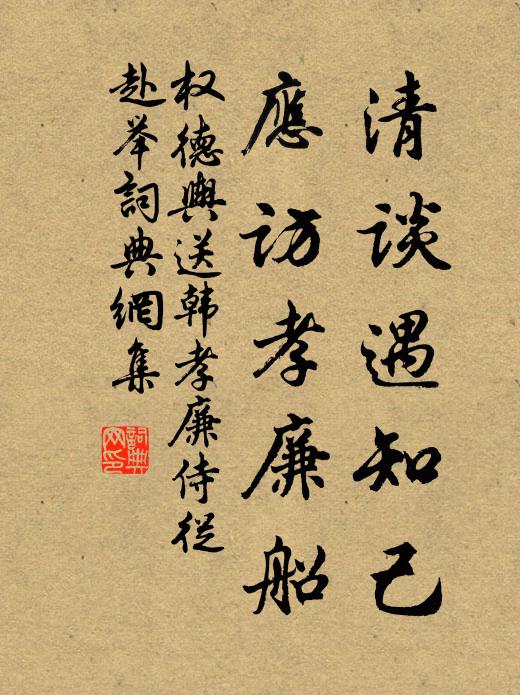 清谈遇知己
應访孝廉船
权德舆送韩孝廉侍从
赴举詞典網集
詞典
网印